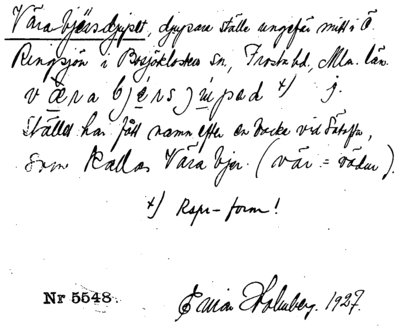 Vära bjärsdjupet, djupare ställe ungefär mitt i Ö.
Ringsjön i Bosjöklosters sn, Frosta hd, Mlm. län.
vära bjersjupad x) j.
Stället har fått namn efter en backe vid
som kallas Vära bjer. (vär = vädur).
x) Rspr-form!
Nr 5548. Einar Holmberg. 1927.